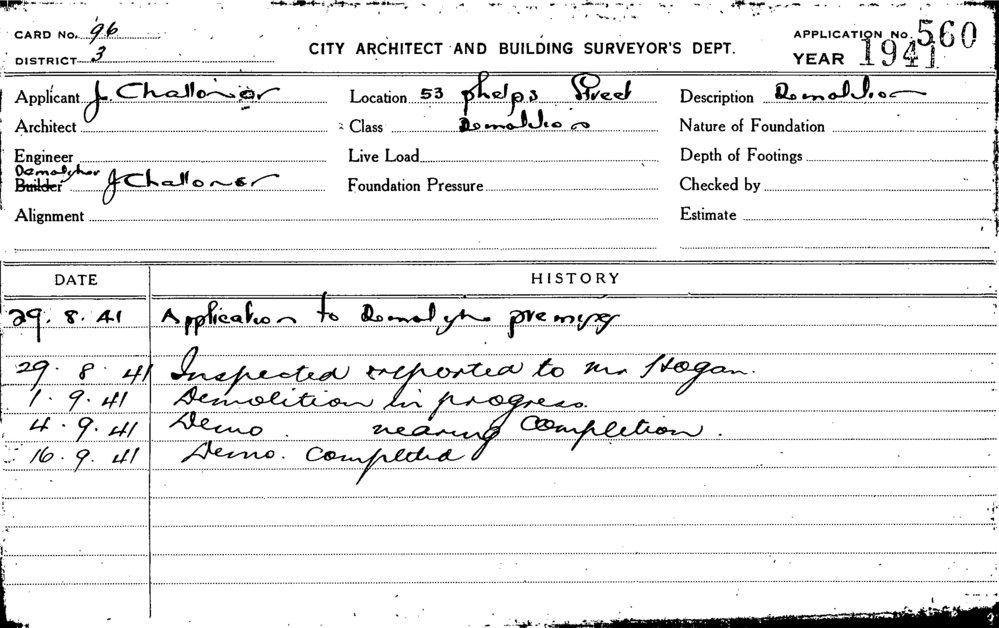 CARD No. 96
DISTRICT 3
CITY ARCHITECT AND BUILDING SURVEYOR'S DEPT.
APPLICATION No. 560
YEAR 1941
Applicant J. Challoner Location 53 Phelps Street Description Demolition
Architect Class Demolition Nature of Foundation
Engineer Live Load Depth of Footings
Demolisher
Builder J Challoner Foundation Pressure Checked by
Alignment Estimate
DATE HISTORY
29. 8. 41 Application to Demolish premises
29. 8. 41 Inspected & reported to Mr Hogan.
1. 9. 41 Demolition in progress.
4. 9. 41 Demo. nearing completion.
16. 9. 41 Demo. completed